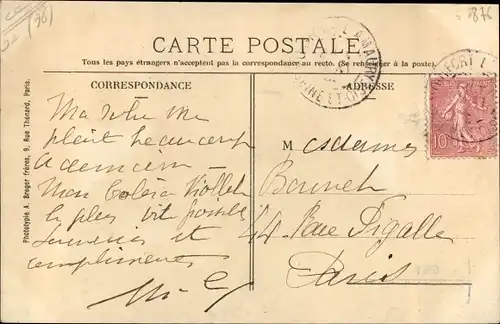 (78)
CARTE POSTALE
Tous les pays étrangers n'acceptent pas la correspondance au recto. (Se renseigner à la poste).
CORRESPONDANCE
ADRESSE
Phototypie A. Breger frères, 9, Rue Thénard, Paris.
10
plait beaucoup
A demain
le plus vite possible
souvenirs et
compliments
M esdames
Bonnet
44 Rue Pigalle
Paris